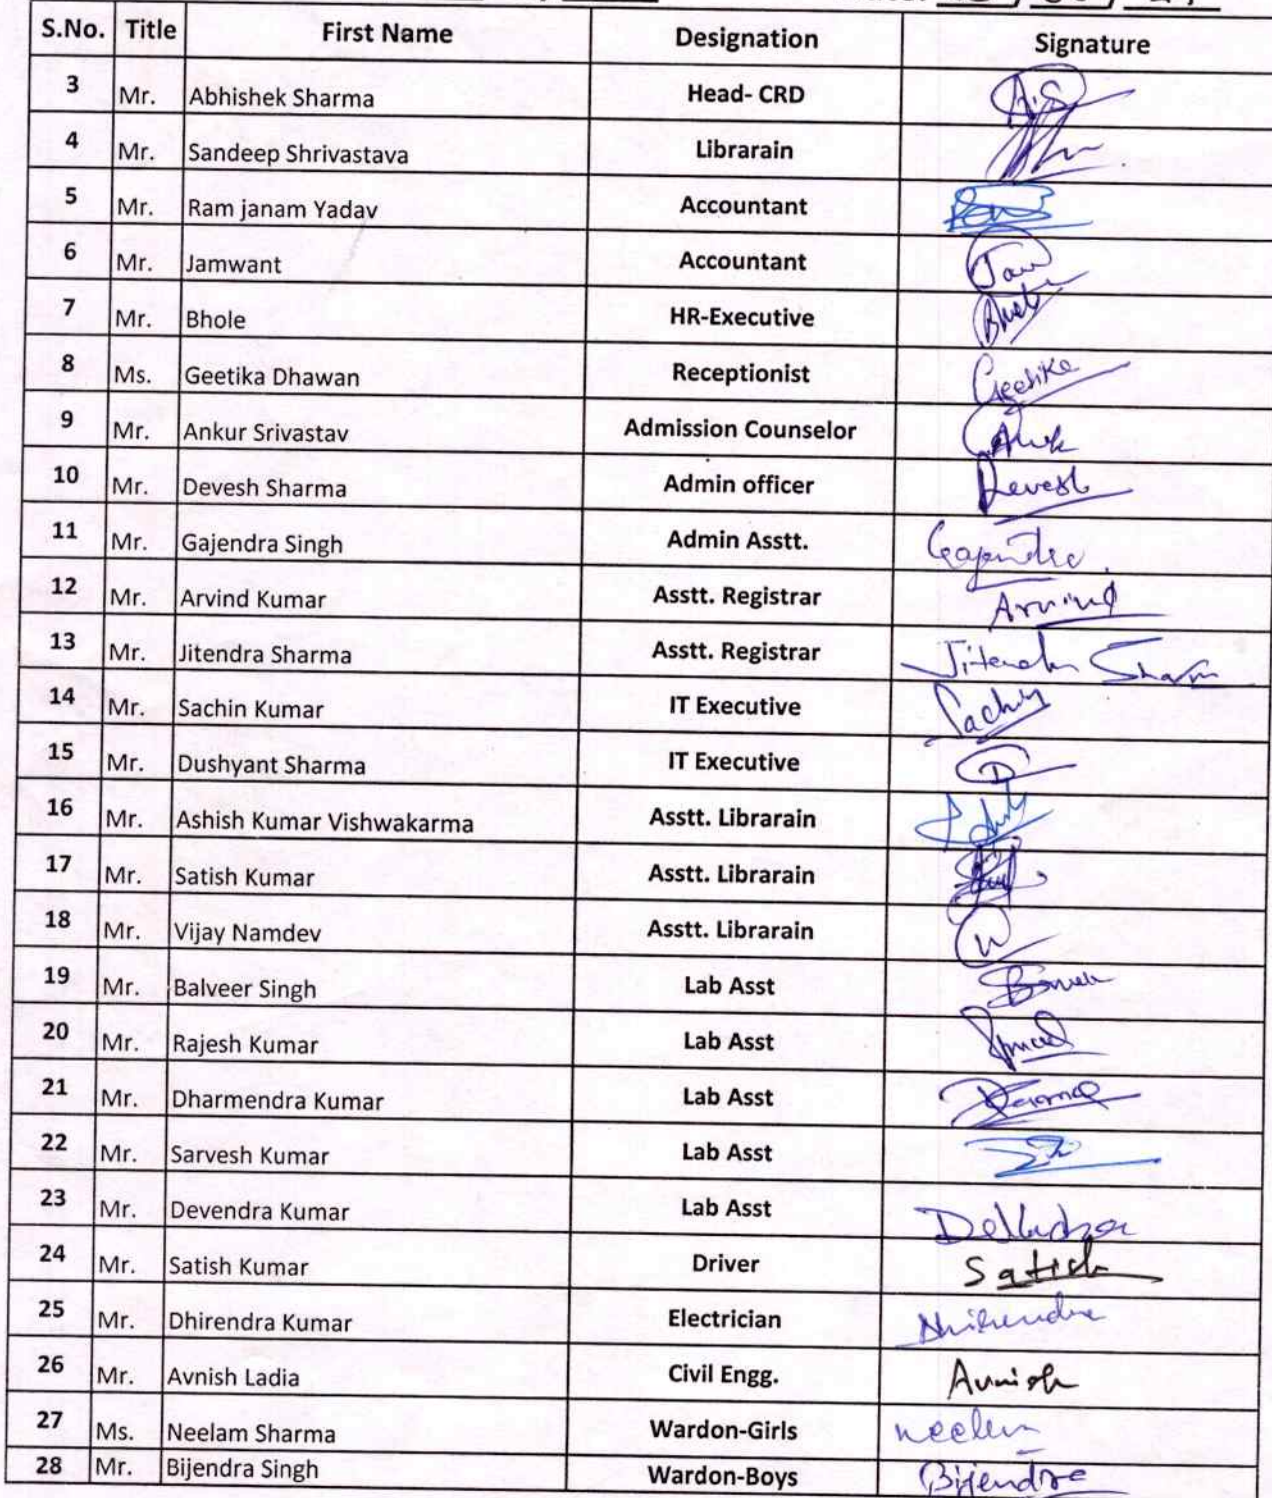 S.No. Title First Name Designation Signature
3 Mr. Abhishek Sharma Head- CRD A.S
4 Mr. Sandeep Shrivastava Librarain
5 Mr. Ram janam Yadav Accountant
6 Mr. Jamwant Accountant
7 Mr. Bhole HR-Executive
8 Ms. Geetika Dhawan Receptionist Geetika
9 Mr. Ankur Srivastav Admission Counselor
10 Mr. Devesh Sharma Admin officer Devesh
11 Mr. Gajendra Singh Admin Asstt. Gajendra
12 Mr. Arvind Kumar Asstt. Registrar Arvind
13 Mr. Jitendra Sharma Asstt. Registrar Jitendra Sharma
14 Mr. Sachin Kumar IT Executive Sachin
15 Mr. Dushyant Sharma IT Executive D
16 Mr. Ashish Kumar Vishwakarma Asstt. Librarain
17 Mr. Satish Kumar Asstt. Librarain
18 Mr. Vijay Namdev Asstt. Librarain
19 Mr. Balveer Singh Lab Asst
20 Mr. Rajesh Kumar Lab Asst
21 Mr. Dharmendra Kumar Lab Asst
22 Mr. Sarvesh Kumar Lab Asst
23 Mr. Devendra Kumar Lab Asst
24 Mr. Satish Kumar Driver Satish
25 Mr. Dhirendra Kumar Electrician Dhirendra
26 Mr. Avnish Ladia Civil Engg. Avnish
27 Ms. Neelam Sharma Wardon-Girls Neelam
28 Mr. Bijendra Singh Wardon-Boys Bijendra